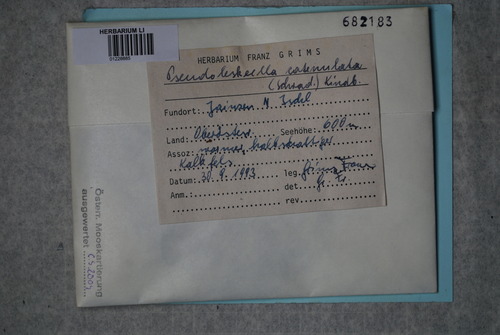 HERBARIUM LI
682183
HERBARIUM FRANZ GRIMS
Pseudoleskeella catenulata
(Schrad.) Kindb.
Fundort:
Land: Oberösterr. Seehöhe: 600 m
Assoz:
Kalkfels
Datum: 30.9.1993 leg. Grims Franz
Anm.: det. Gr. F.
rev.
Östern. Mooskartierung
ausgewertet